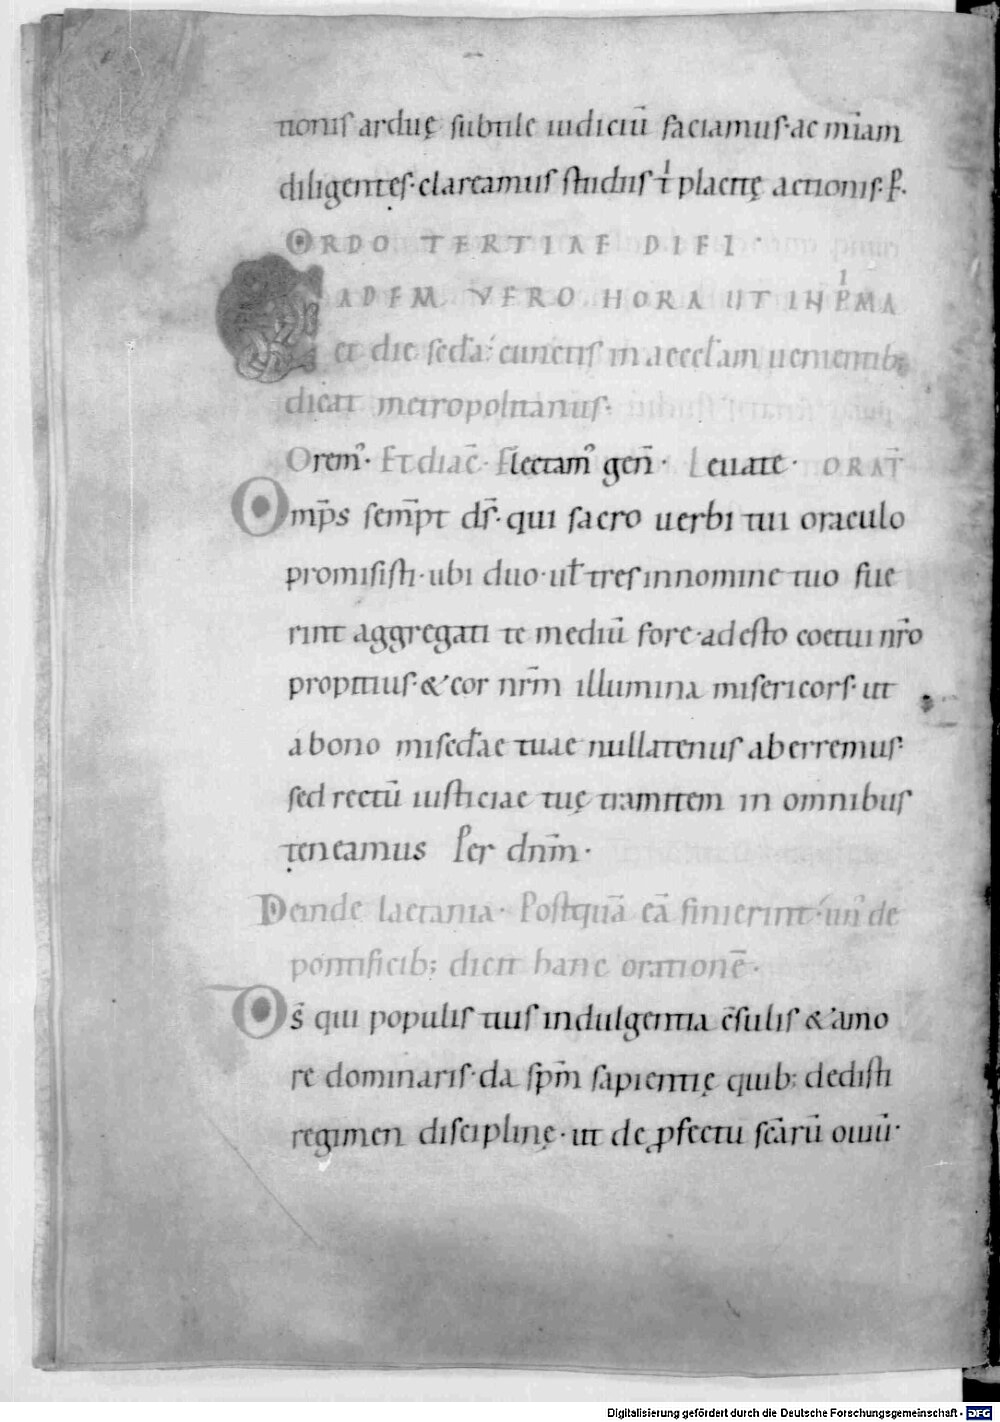 tionis arduę subtile iudiciū faciamus· ac miām
diligentes· clareamus studiis ł placitę actionis· P̄.
ORDO TERTIAE DIEI·
EADEM VERO HORA UT IN PMA
et die sedā· cunctis in aecclam uenientib;
dicat metropolitanus·
Orem'· Et diac̄· Flectam' gen̄· Leuate· ORAT̄
Omp̄s sem̄pt ds̄· qui sacro uerbi tui oraculo
promisisti· ubi duo· ul tres in nomine tuo fue
rint aggregati te mediū fore· adesto coetui nr̄o
propitius· & cor nrm̄ illumina misericors· ut
a bono misedae tuae nullatenus aberremus·
sed rectū iusticiae tuę tramitem in omnibus
teneamus Per dnm̄·
Deinde laetania· Postquā eā finierint· un' de
pontificib; dicit hanc orationē·
Ds̄ qui populis tuis indulgentia c̄sulis & amo
re dominaris· da spm̄ sapientię quib; dedisti
regimen disciplinę· ut de ꝓfectu scārū ouiū·
Digitalisierung gefördert durch die Deutsche Forschungsgemeinschaft - DFG